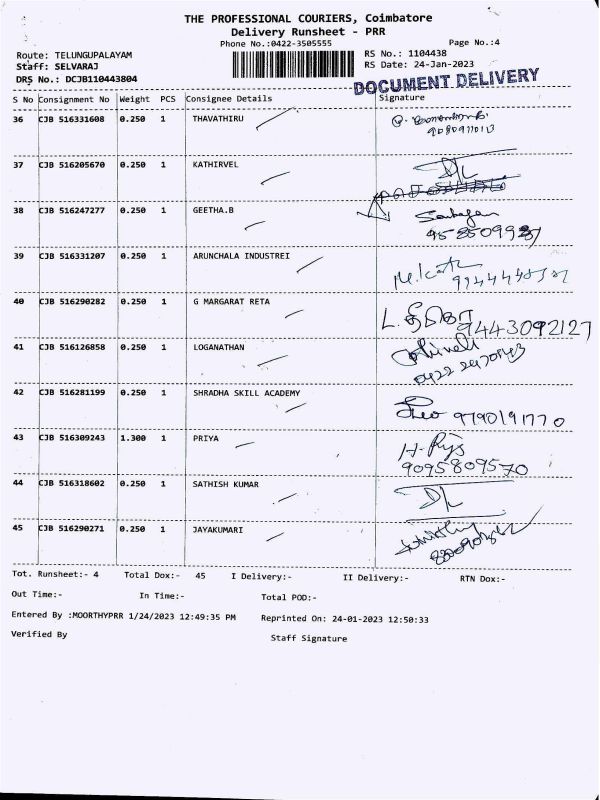 THE PROFESSIONAL COURIERS, Coimbatore
Delivery Runsheet - PRR
Phone No.:0422-3505555
Page No.:4
Route: TELUNGUPALAYAM
RS No.: 1104438
Staff: SELVARAJ
RS Date: 24-Jan-2023
DRS No.: DCJB110443804
DOCUMENT DELIVERY
S No Consignment No Weight PCS Consignee Details Signature
36 CJB 516331608 0.250 1 THAVATHIRU
37 CJB 516205670 0.250 1 KATHIRVEL
38 CJB 516247277 0.250 1 GEETHA.B
39 CJB 516331207 0.250 1 ARUNCHALA INDUSTREI
40 CJB 516290282 0.250 1 G MARGARAT RETA 9443092127
41 CJB 516126858 0.250 1 LOGANATHAN
42 CJB 516281199 0.250 1 SHRADHA SKILL ACADEMY 9790191770
43 CJB 516309243 1.300 1 PRIYA
9095809570
44 CJB 516318602 0.250 1 SATHISH KUMAR
45 CJB 516290271 0.250 1 JAYAKUMARI
Tot. Runsheet:- 4 Total Dox:- 45 I Delivery:- II Delivery:- RTN Dox:-
Out Time:- In Time:- Total POD:-
Entered By :MOORTHYPRR 1/24/2023 12:49:35 PM Reprinted On: 24-01-2023 12:50:33
Verified By Staff Signature